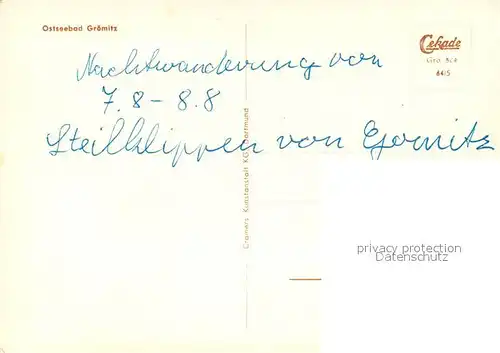 Ostseebad Grömitz
Cekade
Grö 324
6415
Nachtwanderung von
7.8 – 8.8
Steilklippen von Gromitz
Cramers Kunstanstalt KG, Dortmund
privacy protection
Datenschutz